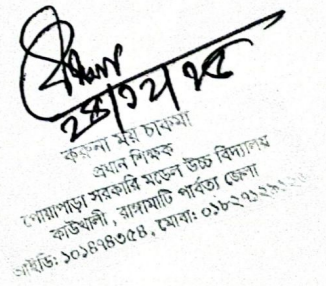 করুনা ময় চাকমা
প্রধান শিক্ষক
পোয়াপাড়া সরকারি মডেল উচ্চ বিদ্যালয়
কাউখালী, রাঙ্গামাটি পার্বত্য জেলা
আইডি: ১০১৪৭৪৩৫৪, মোবা: